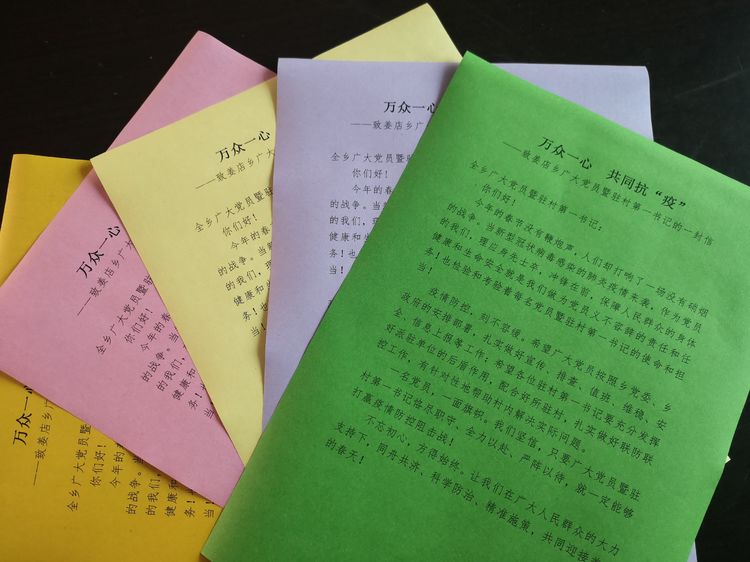 万众一心 共同抗“疫”
——致姜店乡广大党员暨驻村第一书记的一封信
全乡广大党员暨驻村第一书记:
你们好!
今年的春节没有鞭炮声,人们却打响了一场没有硝烟
的战争。当新型冠状病毒感染的肺炎疫情来袭,作为党员
的我们,理应身先士卒,冲锋在前,保障人民群众的身体
健康和生命安全就是我们做为党员义不容辞的责任和任
务!也检验和考验着每全党员暨驻村第一书记的使命和担
当!
疫情防控,刻不容缓。希望广大党员按照乡党委、乡
政府的安排部署,扎实做好宣传、排查、值班、维稳、安
全、信息上报等工作;希望各位驻村第一书记要充分发挥
好派驻单位的后盾作用,配合好所驻村,扎实做好联防联
控工作,有针对性地帮助村内解决实际问题。
一名党员,一面旗帜。我们坚信,只要广大党员暨驻
村第一书记恪尽职守,全力以赴、严阵以待,就一定能够
打赢疫情防控阻击战!
不忘初心,方得始终。让我们在广大人民群众的大力
支持下,同舟共济、科学防治、精准施策,共同迎接美
的春天!
万众一心
——致姜店乡广
全乡广大党员暨驻
你们好!
今年的春
的战争。当
的我们,理
健康和生
务!也
当!
万众一心
——致姜店乡广大
全乡广大党员暨驻
你们好!
今年的春
的战争。当新
的我们,理
健康和生
务!也
当!
万众一心
——致姜店乡广大
全乡广大党员暨
你们好!
今年的
的战争。当
的我们,
健康和
务!
当!
万众一心
——致姜店乡
全乡广大党员暨
你们好!
今年的
的战争。当
的我们
健康和
务!
当!